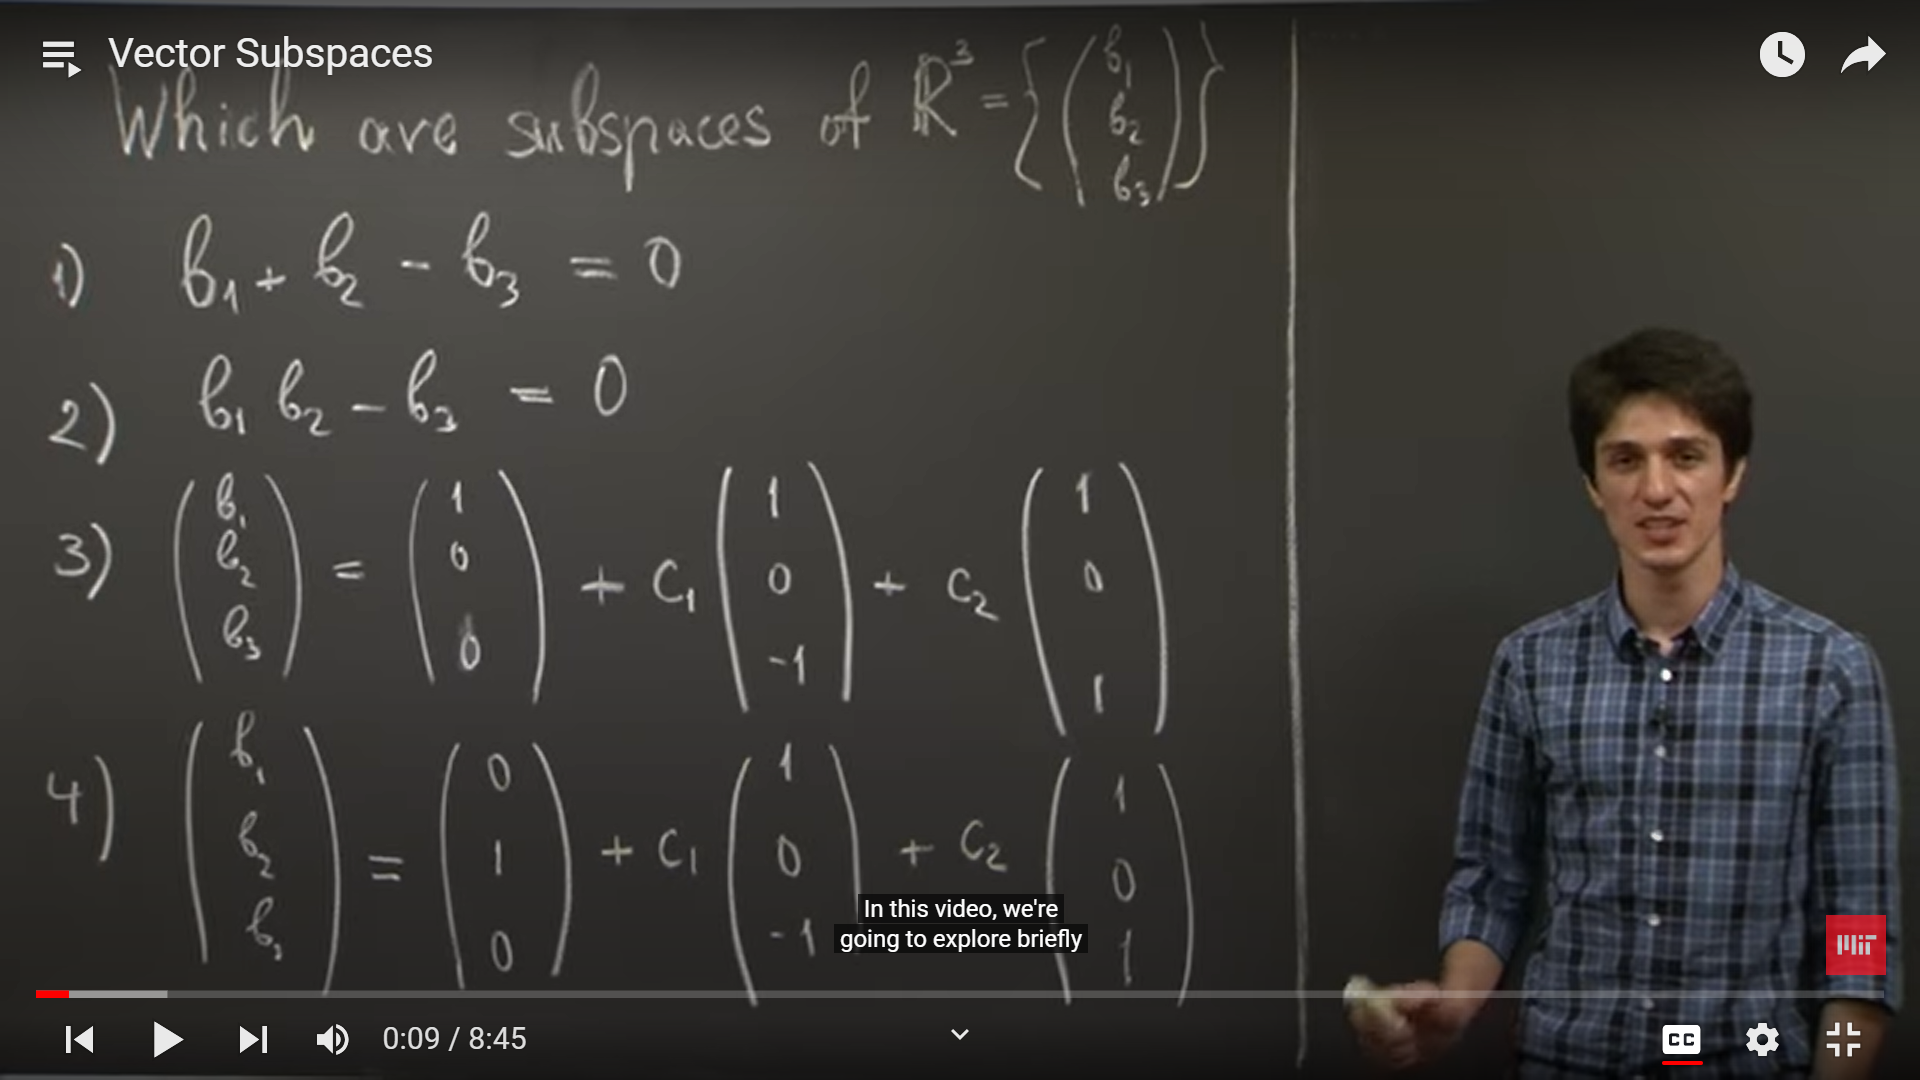 Vector Subspaces
Which are subspaces of ℝ³ = {(b₁ b₂ b₃)}
1) b₁ + b₂ - b₃ = 0
2) b₁ b₂ - b₃ = 0
3) (b₁ b₂ b₃) = (1 0 0) + C₁ (1 0 -1) + C₂ (1 0 1)
4) (b₁ b₂ b₃) = (0 1 0) + C₁ (1 0 -1) + C₂ (1 0 1)
In this video, we're
going to explore briefly
MIT
0:09 / 8:45
CC